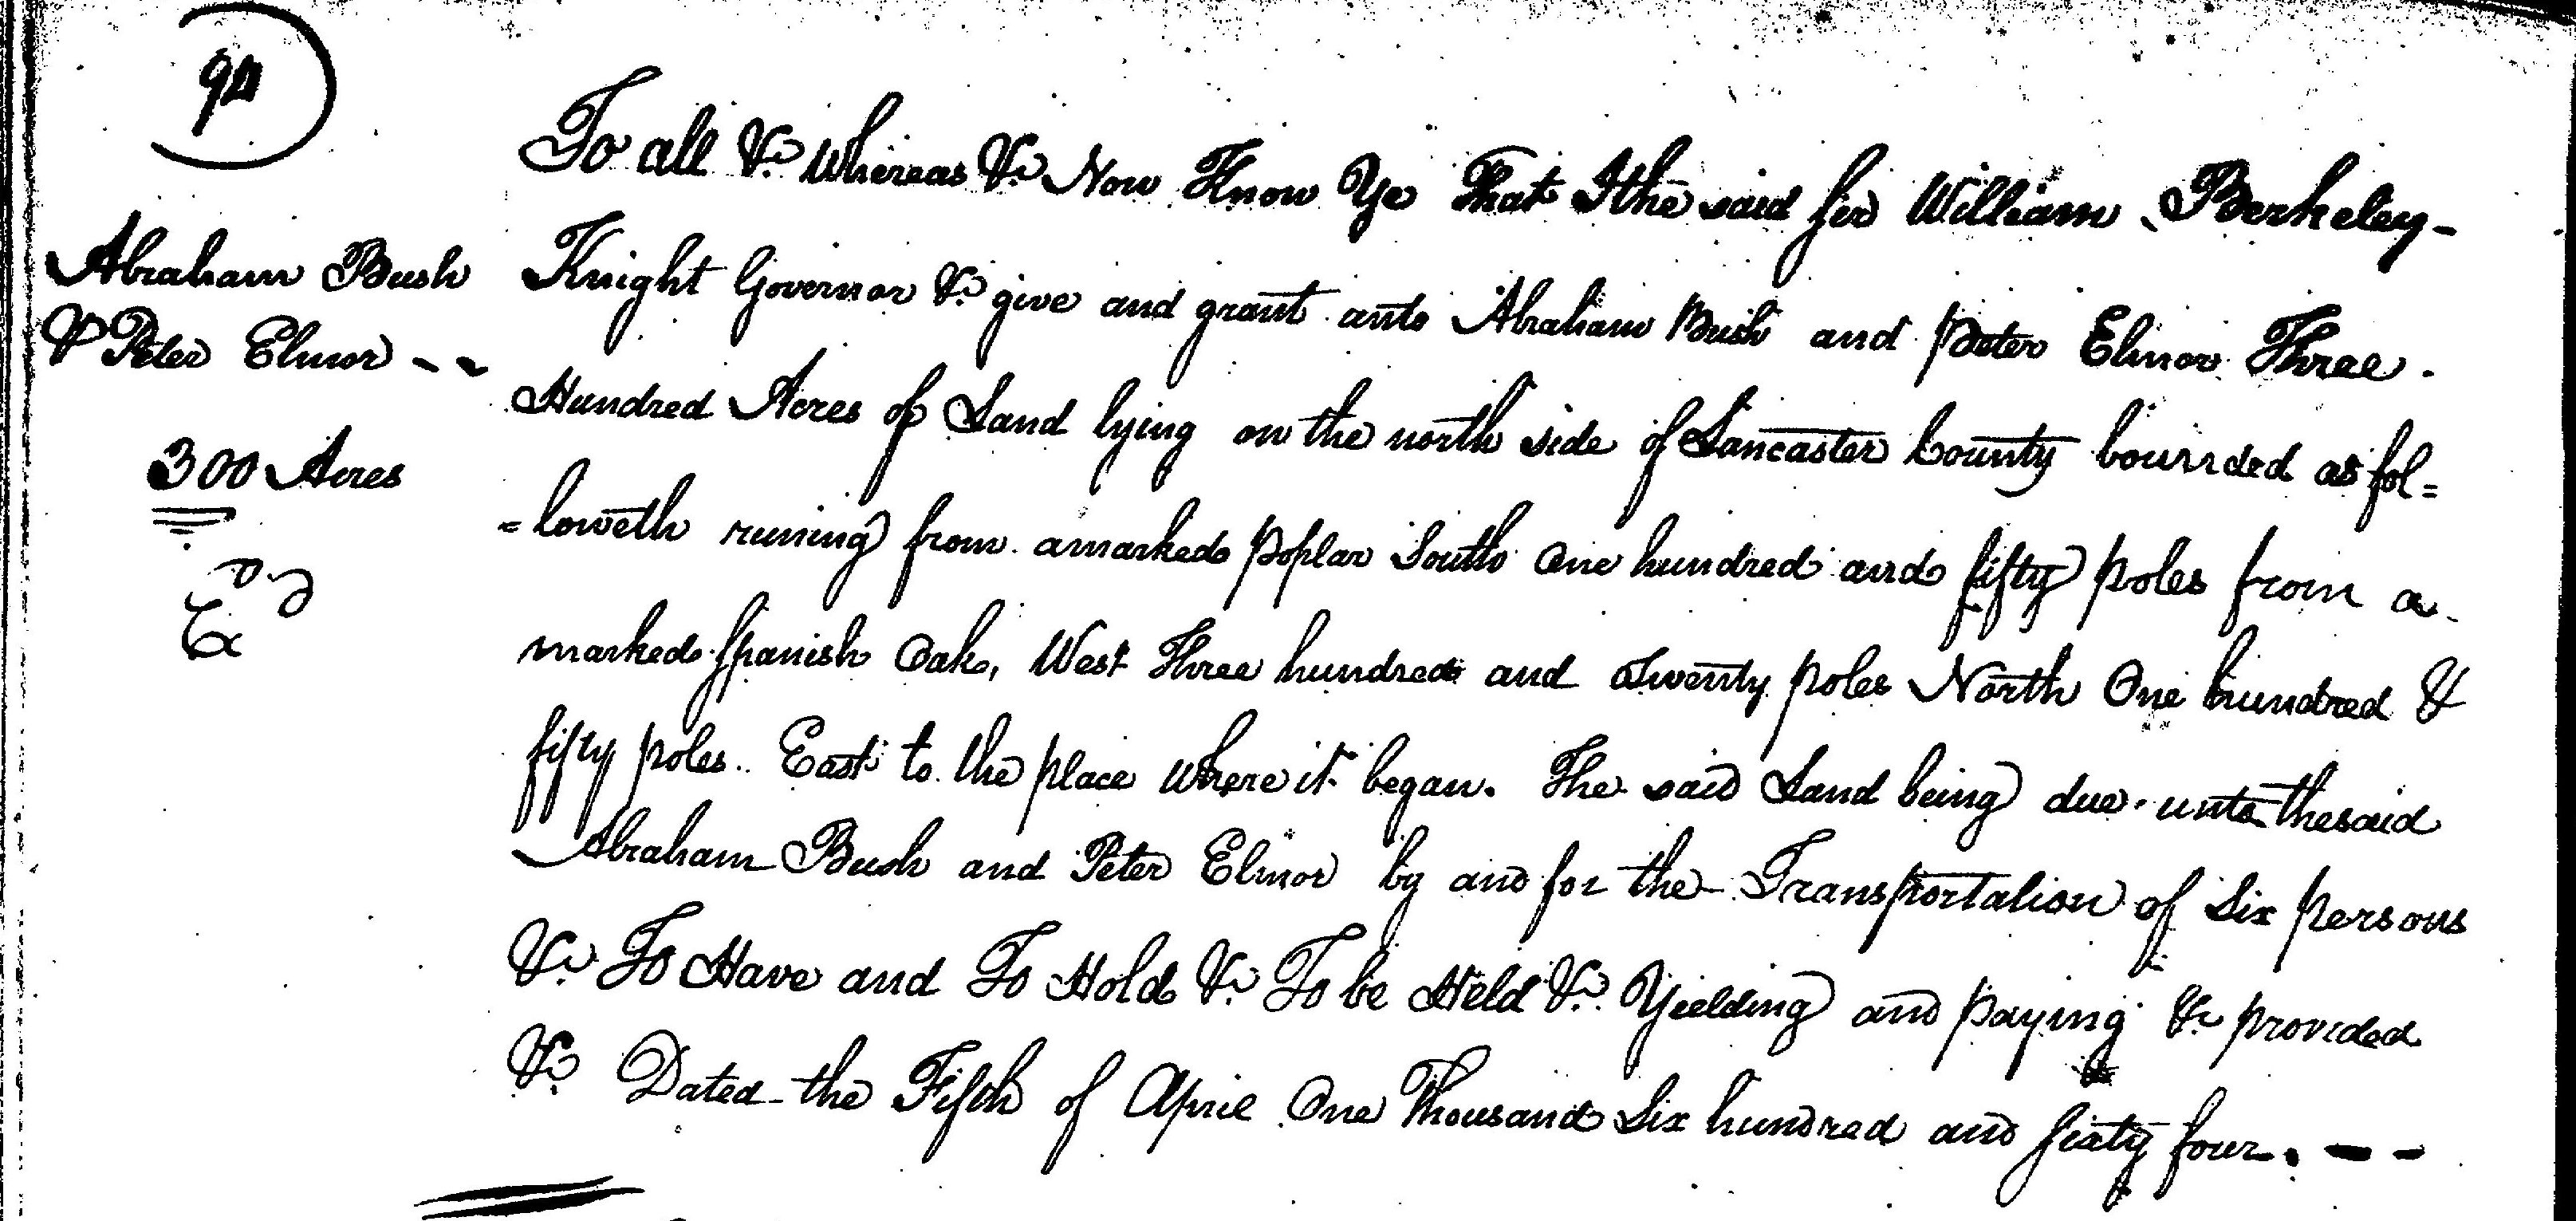 94
Abraham Bush
& Peter Elmor --
300 Acres
Exd
To all &c. Whereas &c. Now Know Ye That I the said Sir William Berkeley-
Knight Governor &c. give and grant unto Abraham Bush and Peter Elmor Three.
Hundred Acres of Land lying on the north side of Lancaster County bounded as fol=
=loweth runing from a marked poplar South One hundred and fifty poles from a
marked Spanish Oak, West Three hundred and Twenty poles North One hundred &
fifty poles.. East to the place where it began. The said Land being due unto thesaid
Abraham Bush and Peter Elmor by and for the Transportation of Six persons
&c. To Have and To Hold &c. To be Held &c. Yielding and paying &c. provided
&c. Dated the Fifth of April One Thousand Six hundred and Sixty four. --